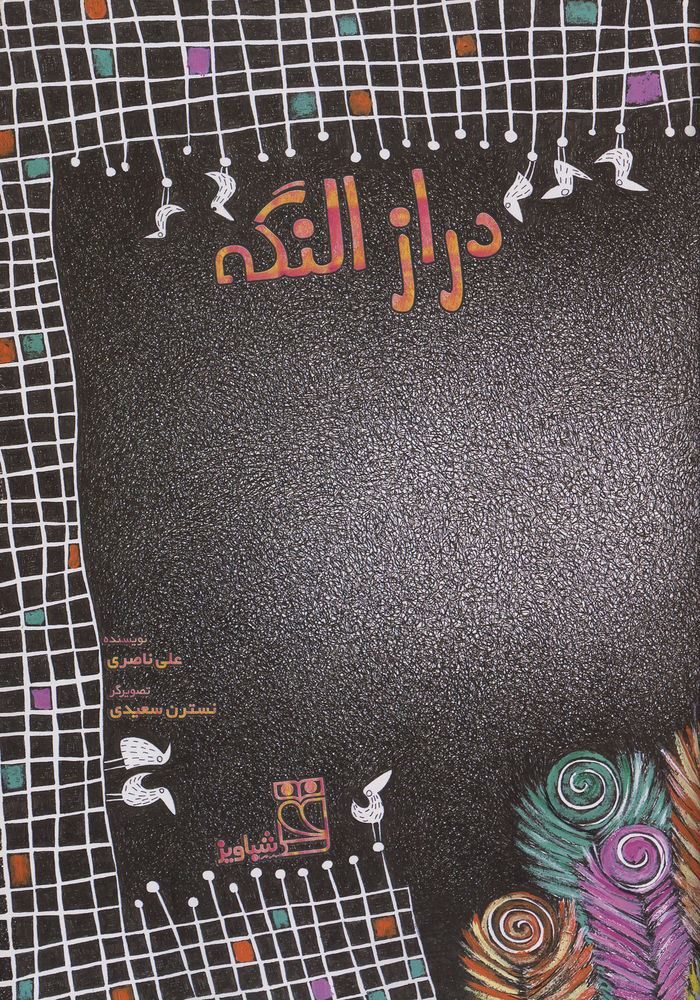 دراز النگه
نویسنده
علی ناصری
تصویرگر
نسترن سعیدی
شباویز